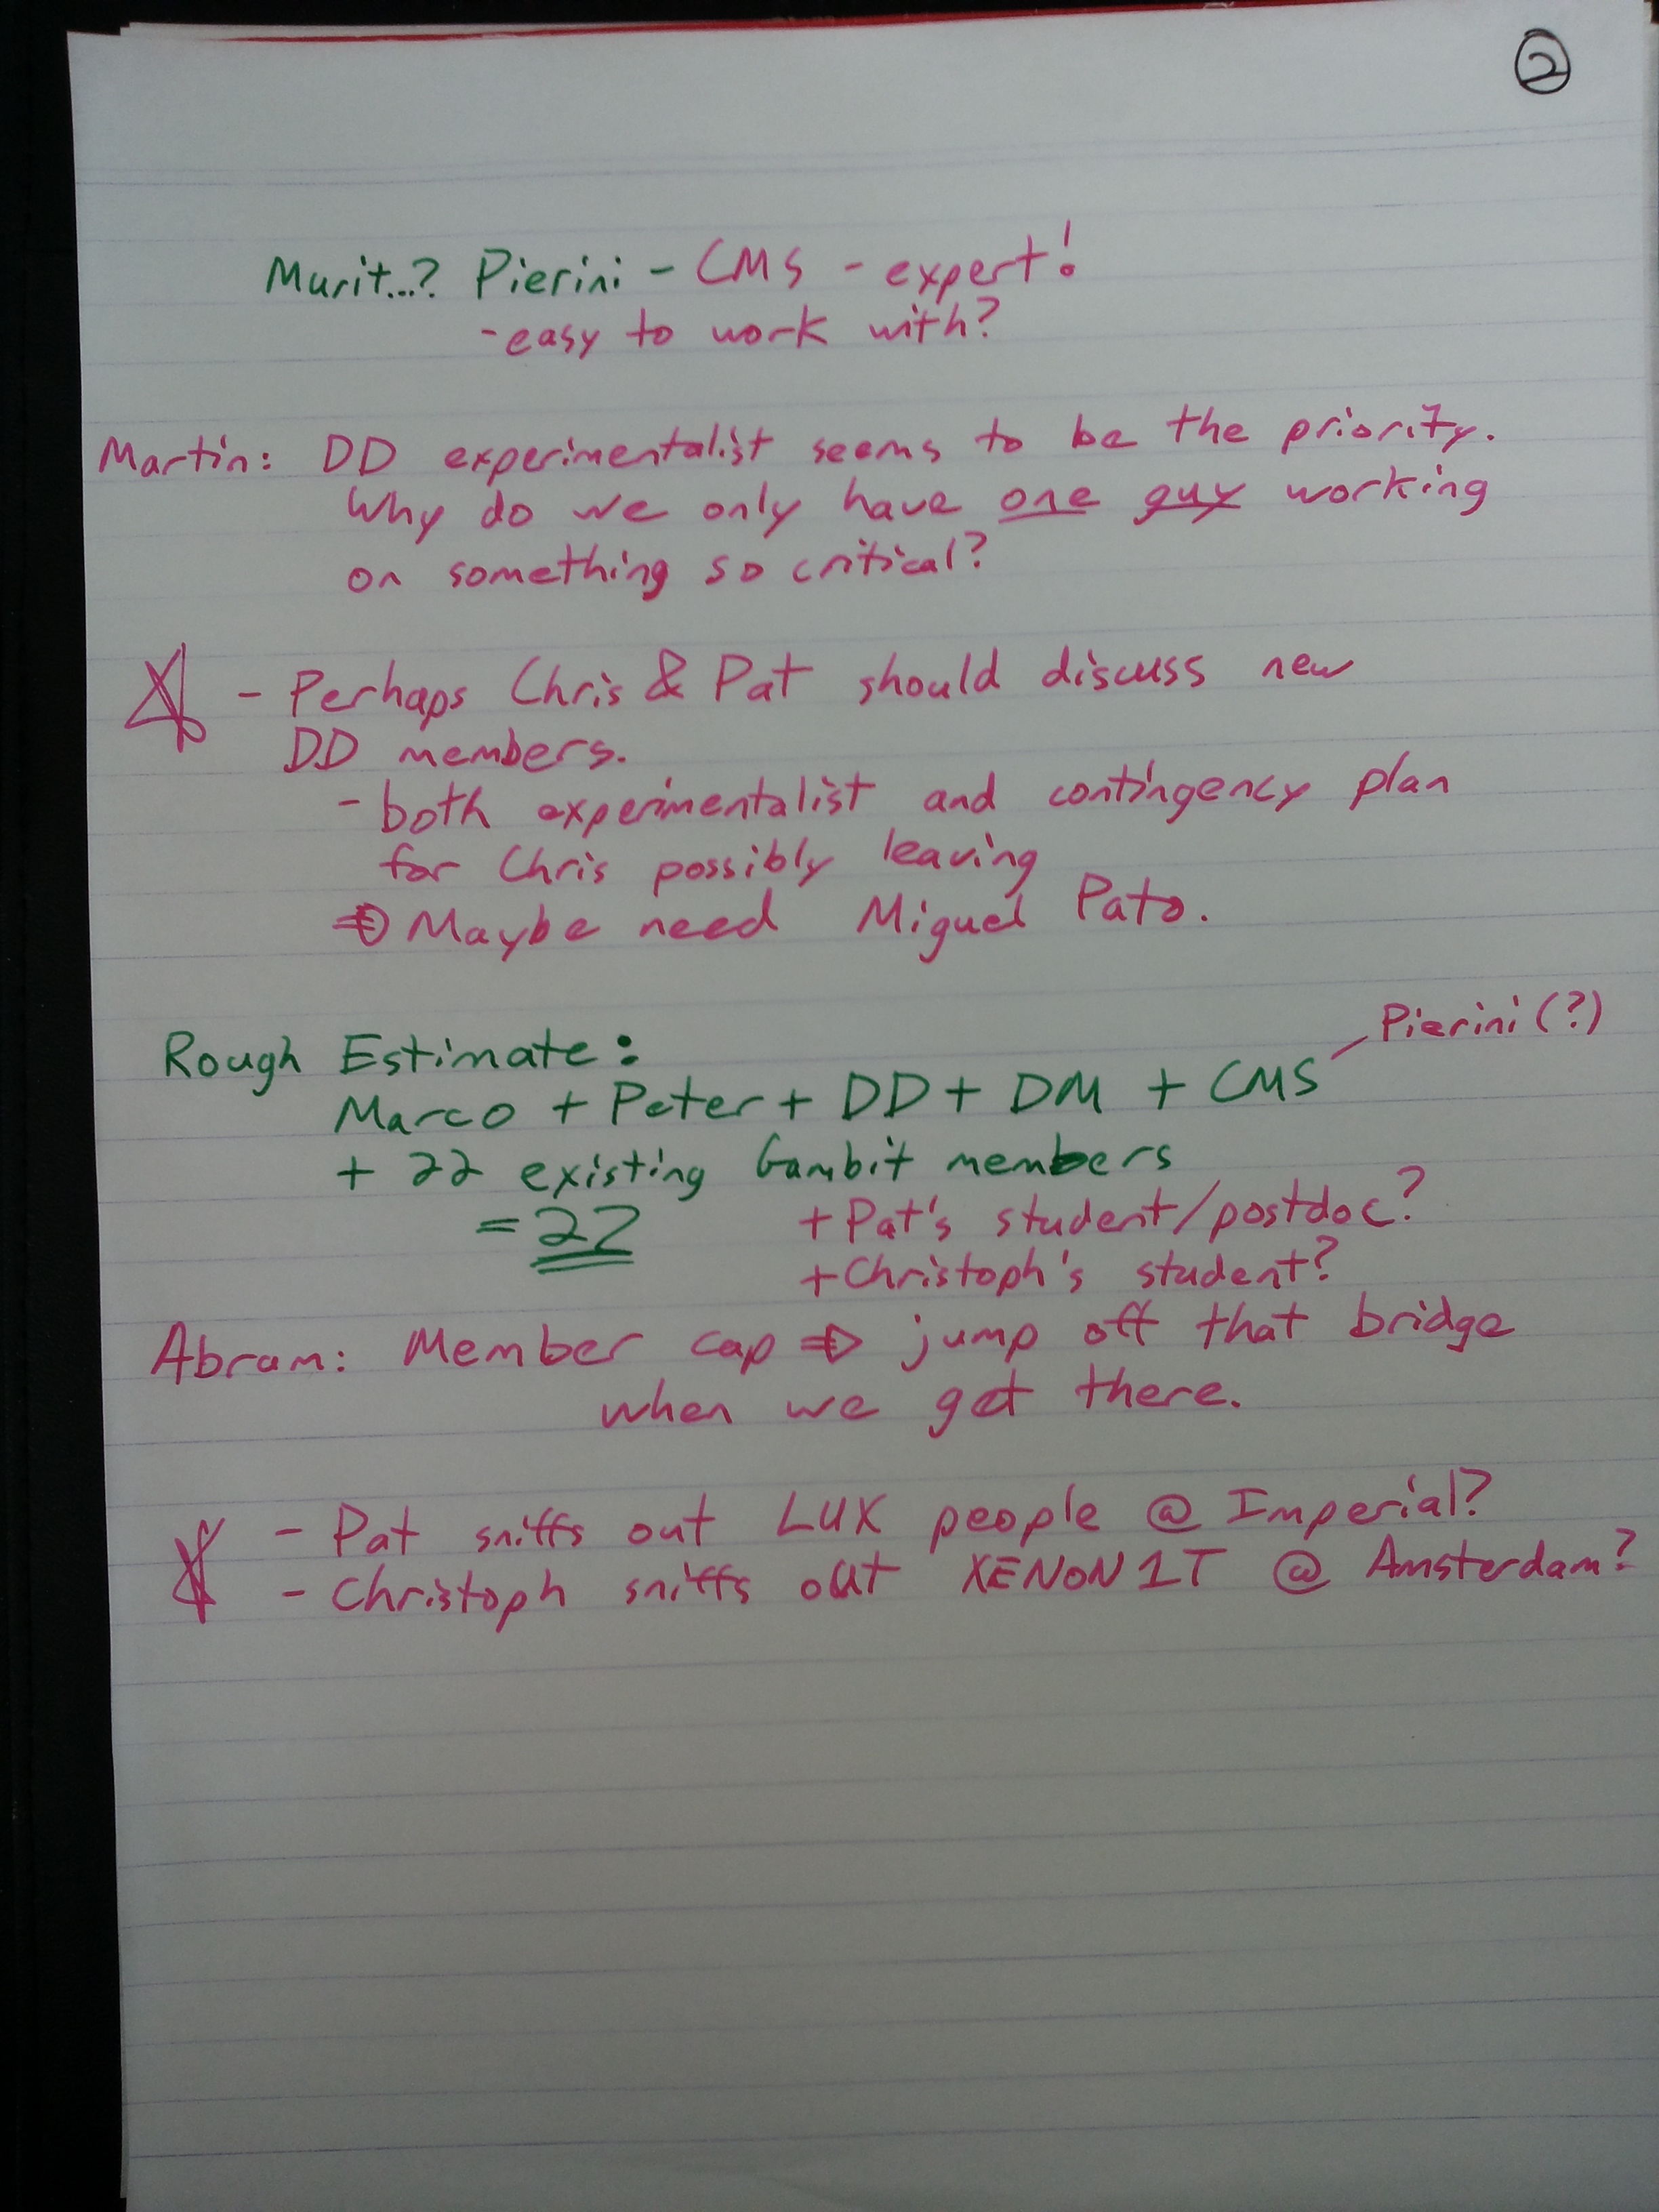 2
Murit...? Pierini - CMS - expert!
- easy to work with?
Martin: DD experimentalist seems to be the priority.
Why do we only have one guy working
on something so critical?
- Perhaps Chris & Pat should discuss new
DD members.
- both experimentalist and contingency plan
for Chris possibly leaving
⇒ Maybe need Miguel Pato.
Rough Estimate:
Pierini (?)
Marco + Peter + DD + DM + CMS
+ 22 existing Gambit members
= 27 + Pat's student/postdoc?
+ Christoph's student?
Abram: Member cap ⇒ jump off that bridge
when we get there.
- Pat sniffs out LUX people @ Imperial?
- Christoph sniffs out XENON1T @ Amsterdam?